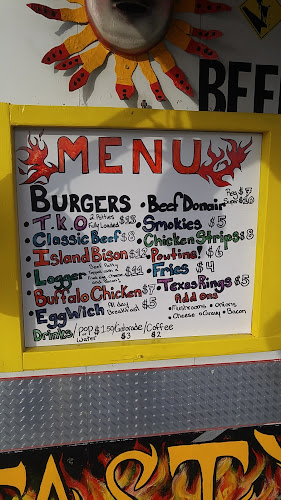 BEEF
MENU
BURGERS
• T.K.O 2 Patties Fully Loaded $13
• Classic Beef $8
• Island Bison $13
• Logger $11
• Buffalo Chicken $7
• EggWich All day Breakfast $5
Drinks/ POP $1.50/Gatorade/Coffee
Water $3 $2
• Beef Donair Reg $7
$10
Smokies $5
Chicken Strips $8
Poutine! $6
Fries $4
Texas Rings $5
Add ons
• Mushrooms • Onions
• Cheese • Gravy • Bacon